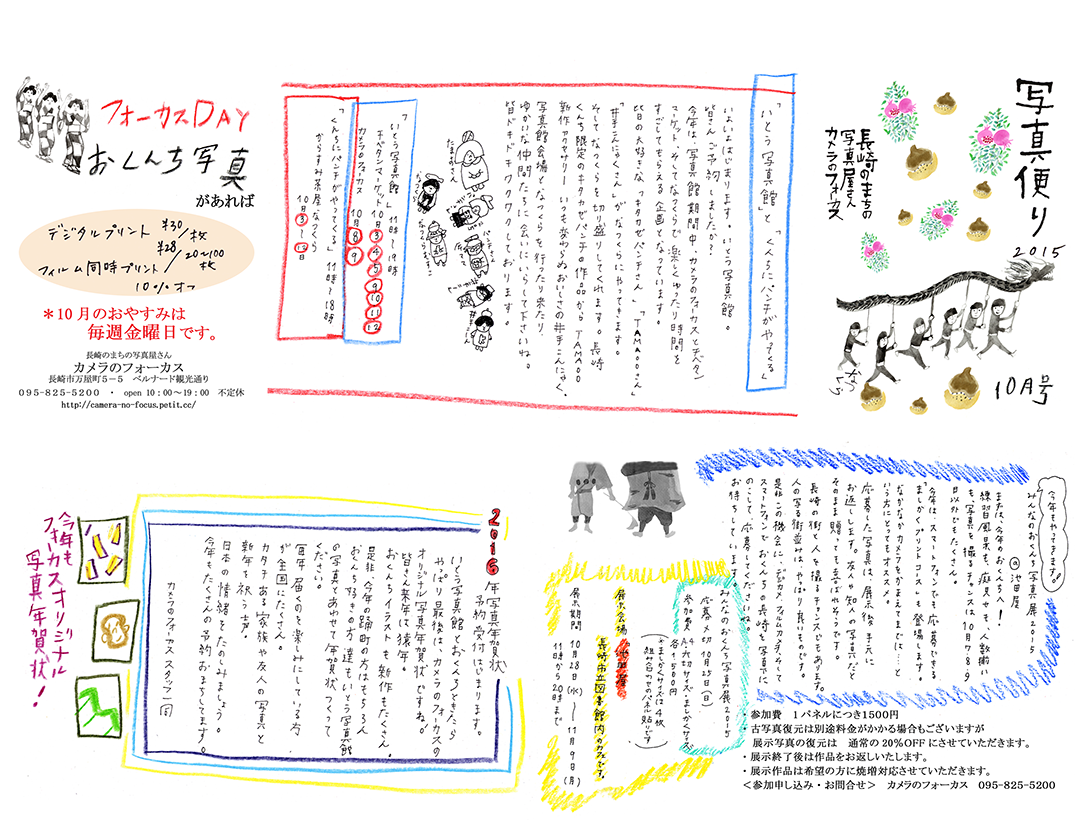 写真便り
2015
長崎のまちの
写真屋さん
カメラのフォーカス
10月号
「いとう写真館」と「くんちにパンチがやってくる」
いよいよはじまります。いとう写真館。
皆さん、ご予約しましたか?
今年は、写真館期間中、カメラのフォーカスとチベタン
マーケット、そしてなつくらで楽しくゆったり時間を
すごしてもらえる企画となっています。
皆の大好きな「キタカゼパンチさん」「TAMAOOさん」
「井手こんにゃくさん」がなつくらにやってきます。
そしてなつくらを切り盛りしてくれます。長崎
くんち限定のキタカゼパンチの作品からTAMAOO
新作アクセサリー いつも変わらぬおいしさの井手こんにゃく。
写真館会場となつくらを行ったり来たり、
ゆかいな仲間たちに会いにいらして下さいね。
皆、ドキドキワクワクしております。
「いとう写真館」 11時〜19時
チベタンマーケット 10月 3 4 5 9 10 11 12
カメラのフォーカス 10月 8 9
「くんちにパンチがやってくる」 11時〜18時
からすみ茶屋なつくら
10月3〜12日
フォーカスDAY
おくんち写真
があれば
デジタルプリント ¥30/枚
¥28/20〜100枚
フィルム同時プリント
10%オフ
*10月のおやすみは
毎週金曜日です。
長崎のまちの写真屋さん
カメラのフォーカス
長崎市万屋町5－5 ベルナード観光通り
095-825-5200 ・ open 10:00〜19:00 不定休
http://camera-no-focus.petit.cc/
今年もやってます。
みんなのおくんち写真展2015
@池田屋
まだ間に合う、今年のおくんち!
練習風景も、庭見せも、人数揃い
も、写真を撮るチャンスは10月7.8.9
日以外でもたくさん。
今年は、スマートフォンでも応募できる
「ましかくプリントコース」も登場します。
なかなかカメラをかまえてまでは…と
いう方にとってもオススメ。
応募した写真は、展示後手元に
お返しします。友人や知人の写真だと
そのまま贈っても喜ばれそうです。
長崎の街と人を撮るチャンスでもあります。
人の写る街並みは、やっぱり良いものです。
是非この機会に、デジカメ、フィルムカメラ、そして
スマートフォンでおくんちの長崎を写真に
のこして、応募してくださいね。
お待ちしています。
みんなのおくんち写真展2015
応募〆切 10月25日(日)
参加費 A4・六切サイズ・ましかくサイズ
各1500円
(*ましかくサイズは4枚
組み合わせのパネル貼りです)
展示会場 池田屋
長崎市立図書館内のカフェです。
展示期間 10月28日(水)〜11月9日(月)
11時から20時まで
・参加費 1パネルにつき1500円
・古写真復元は別途料金がかかる場合もございますが
展示写真の復元は 通常の20%OFFにさせていただきます。
・展示終了後は作品をお返しいたします。
・展示作品は希望の方に焼増対応させていただきます。
＜参加申し込み・お問合せ＞ カメラのフォーカス 095-825-5200
2016年写真年賀状
予約受付はじまります。
いとう写真館とおくんちときたら
やっぱり最後は、カメラのフォーカスの
オリジナル写真年賀状ですね。
皆さん来年は猿年。
おくんちイラストも新作もたくさん。
是非、今年の踊町の方はもちろん
おくんち好きの方達もいとう写真館
の写真とあわせて年賀状つくって
ください。
毎年、届くのを楽しみにしている方
が全国にたくさん。
カタチある家族や友人の写真と
新年を祝う声。
日本の情緒をたのしみましょう。
今年もたくさんの予約おまちしてます。
カメラのフォーカス スタッフ一同
今年も
フォーカスオリジナル
写真年賀状!